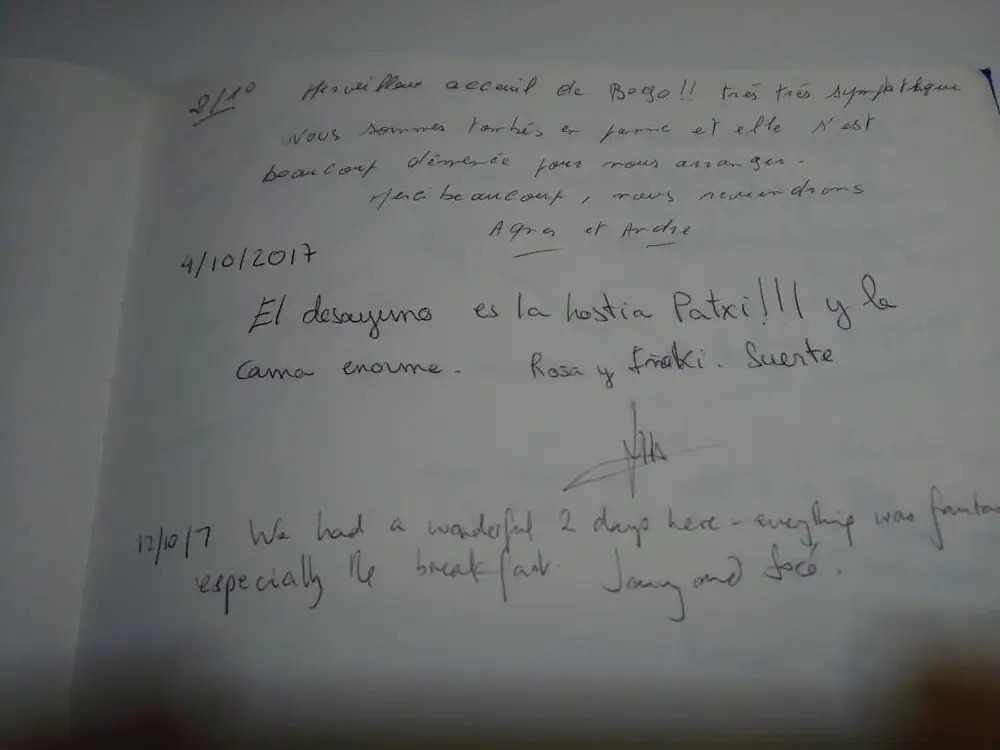 2/10 Merveilleux acceuil de Bego!! très très sympathique
Nous sommes tombés en panne et elle s'est
beaucoup démenée pour nous arranger.
Merci beaucoup, nous reviendrons
et Andre
4/10/2017
El desayuno es la hostia Patxi!!! y la
cama enorme. Rosa y Iñaki. Suerte
12/10/7 We had a wonderful 2 days here - everything was
especially the breakfast. and